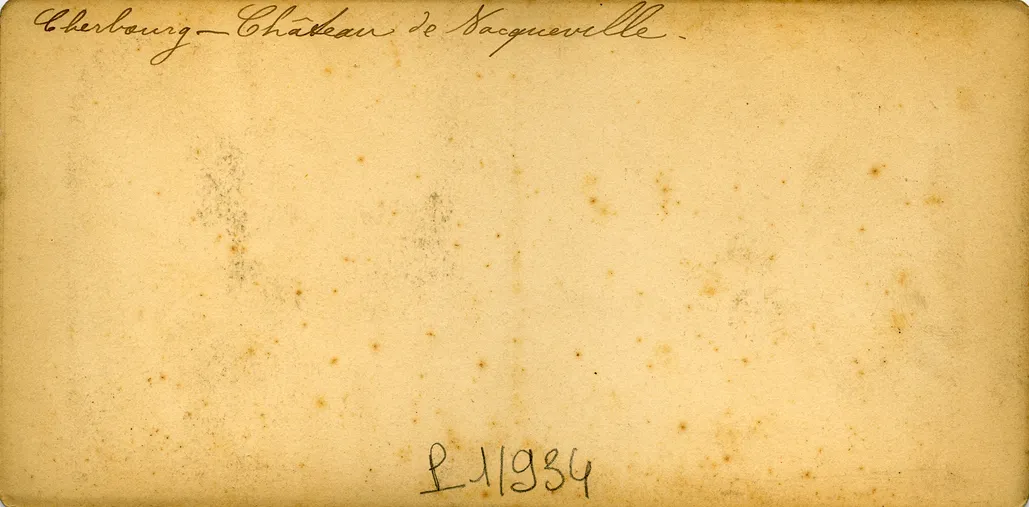 Cherbourg – Château de Nacqueville.
P 1/934